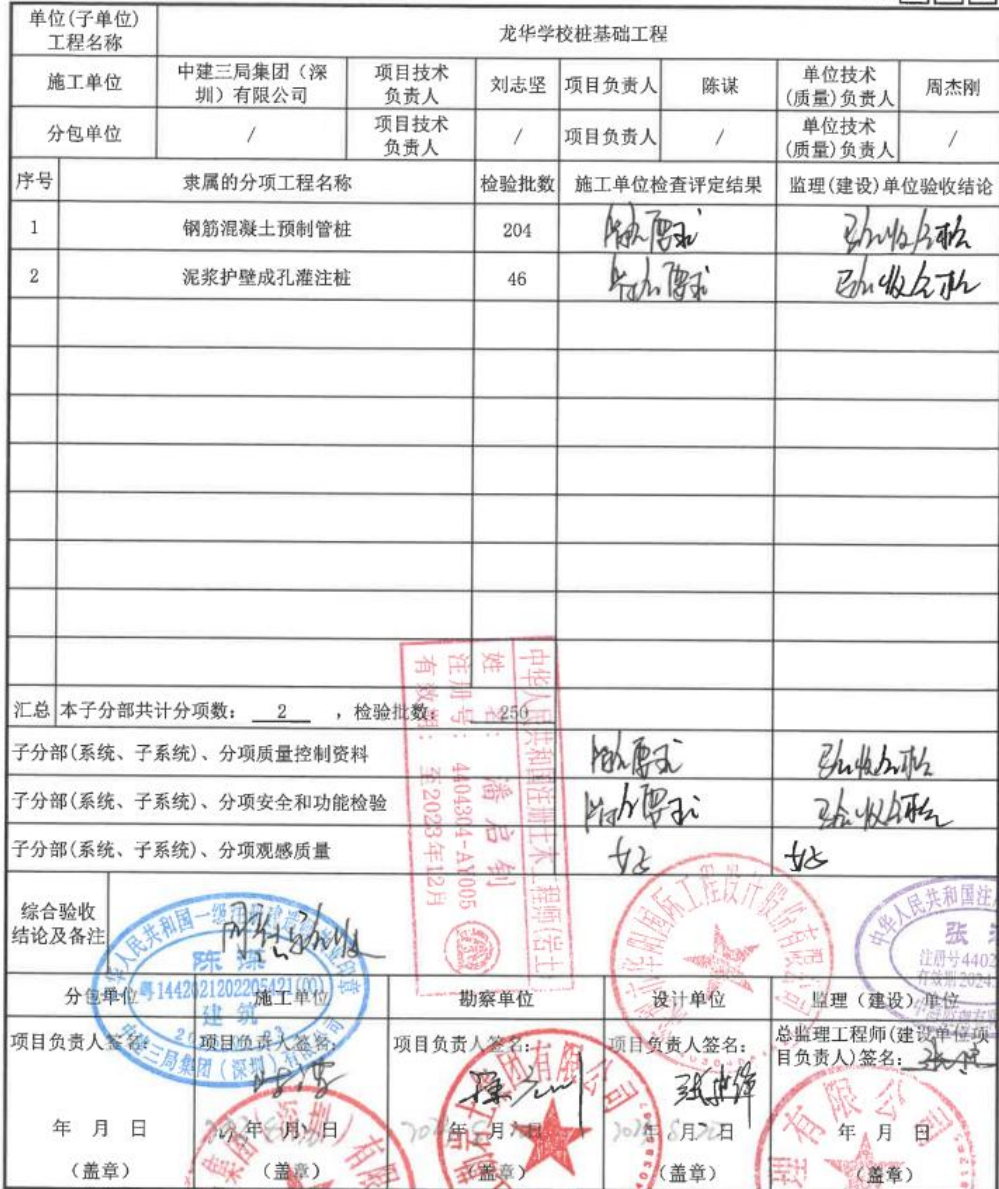 单位(子单位)
工程名称
龙华学校桩基础工程
施工单位
中建三局集团（深
圳）有限公司
项目技术
负责人
刘志坚
项目负责人
陈谋
单位技术
(质量)负责人
周杰刚
分包单位
/
项目技术
负责人
/
项目负责人
/
单位技术
(质量)负责人
/
序号
隶属的分项工程名称
检验批数
施工单位检查评定结果
监理(建设)单位验收结论
1
钢筋混凝土预制管桩
204
符合要求
验收合格
2
泥浆护壁成孔灌注桩
46
符合要求
验收合格
汇总
本子分部共计分项数： 2 ，检验批数： 250
子分部(系统、子系统)、分项质量控制资料
符合要求
验收合格
子分部(系统、子系统)、分项安全和功能检验
符合要求
验收合格
子分部(系统、子系统)、分项观感质量
好
好
中华人民共和国注册土木工程师(岩土)
姓 名：潘启钊
注册号：4404304-AY005
有效期：至2023年12月
综合验收
结论及备注
同意验收
陈谋
粤1442021202205421(00)
建筑
中建三局集团（深圳）有限公司
中华人民共和国注
张
注册号4402
有效期2024
分包单位
施工单位
勘察单位
设计单位
监理（建设）单位
项目负责人签名：
项目负责人签名：
项目负责人签名：
项目负责人签名：
总监理工程师(建设单位项
目负责人)签名：
年 月 日
年 月 日
年 月 日
年 月 日
年 月 日
（盖章）
（盖章）
（盖章）
（盖章）
（盖章）